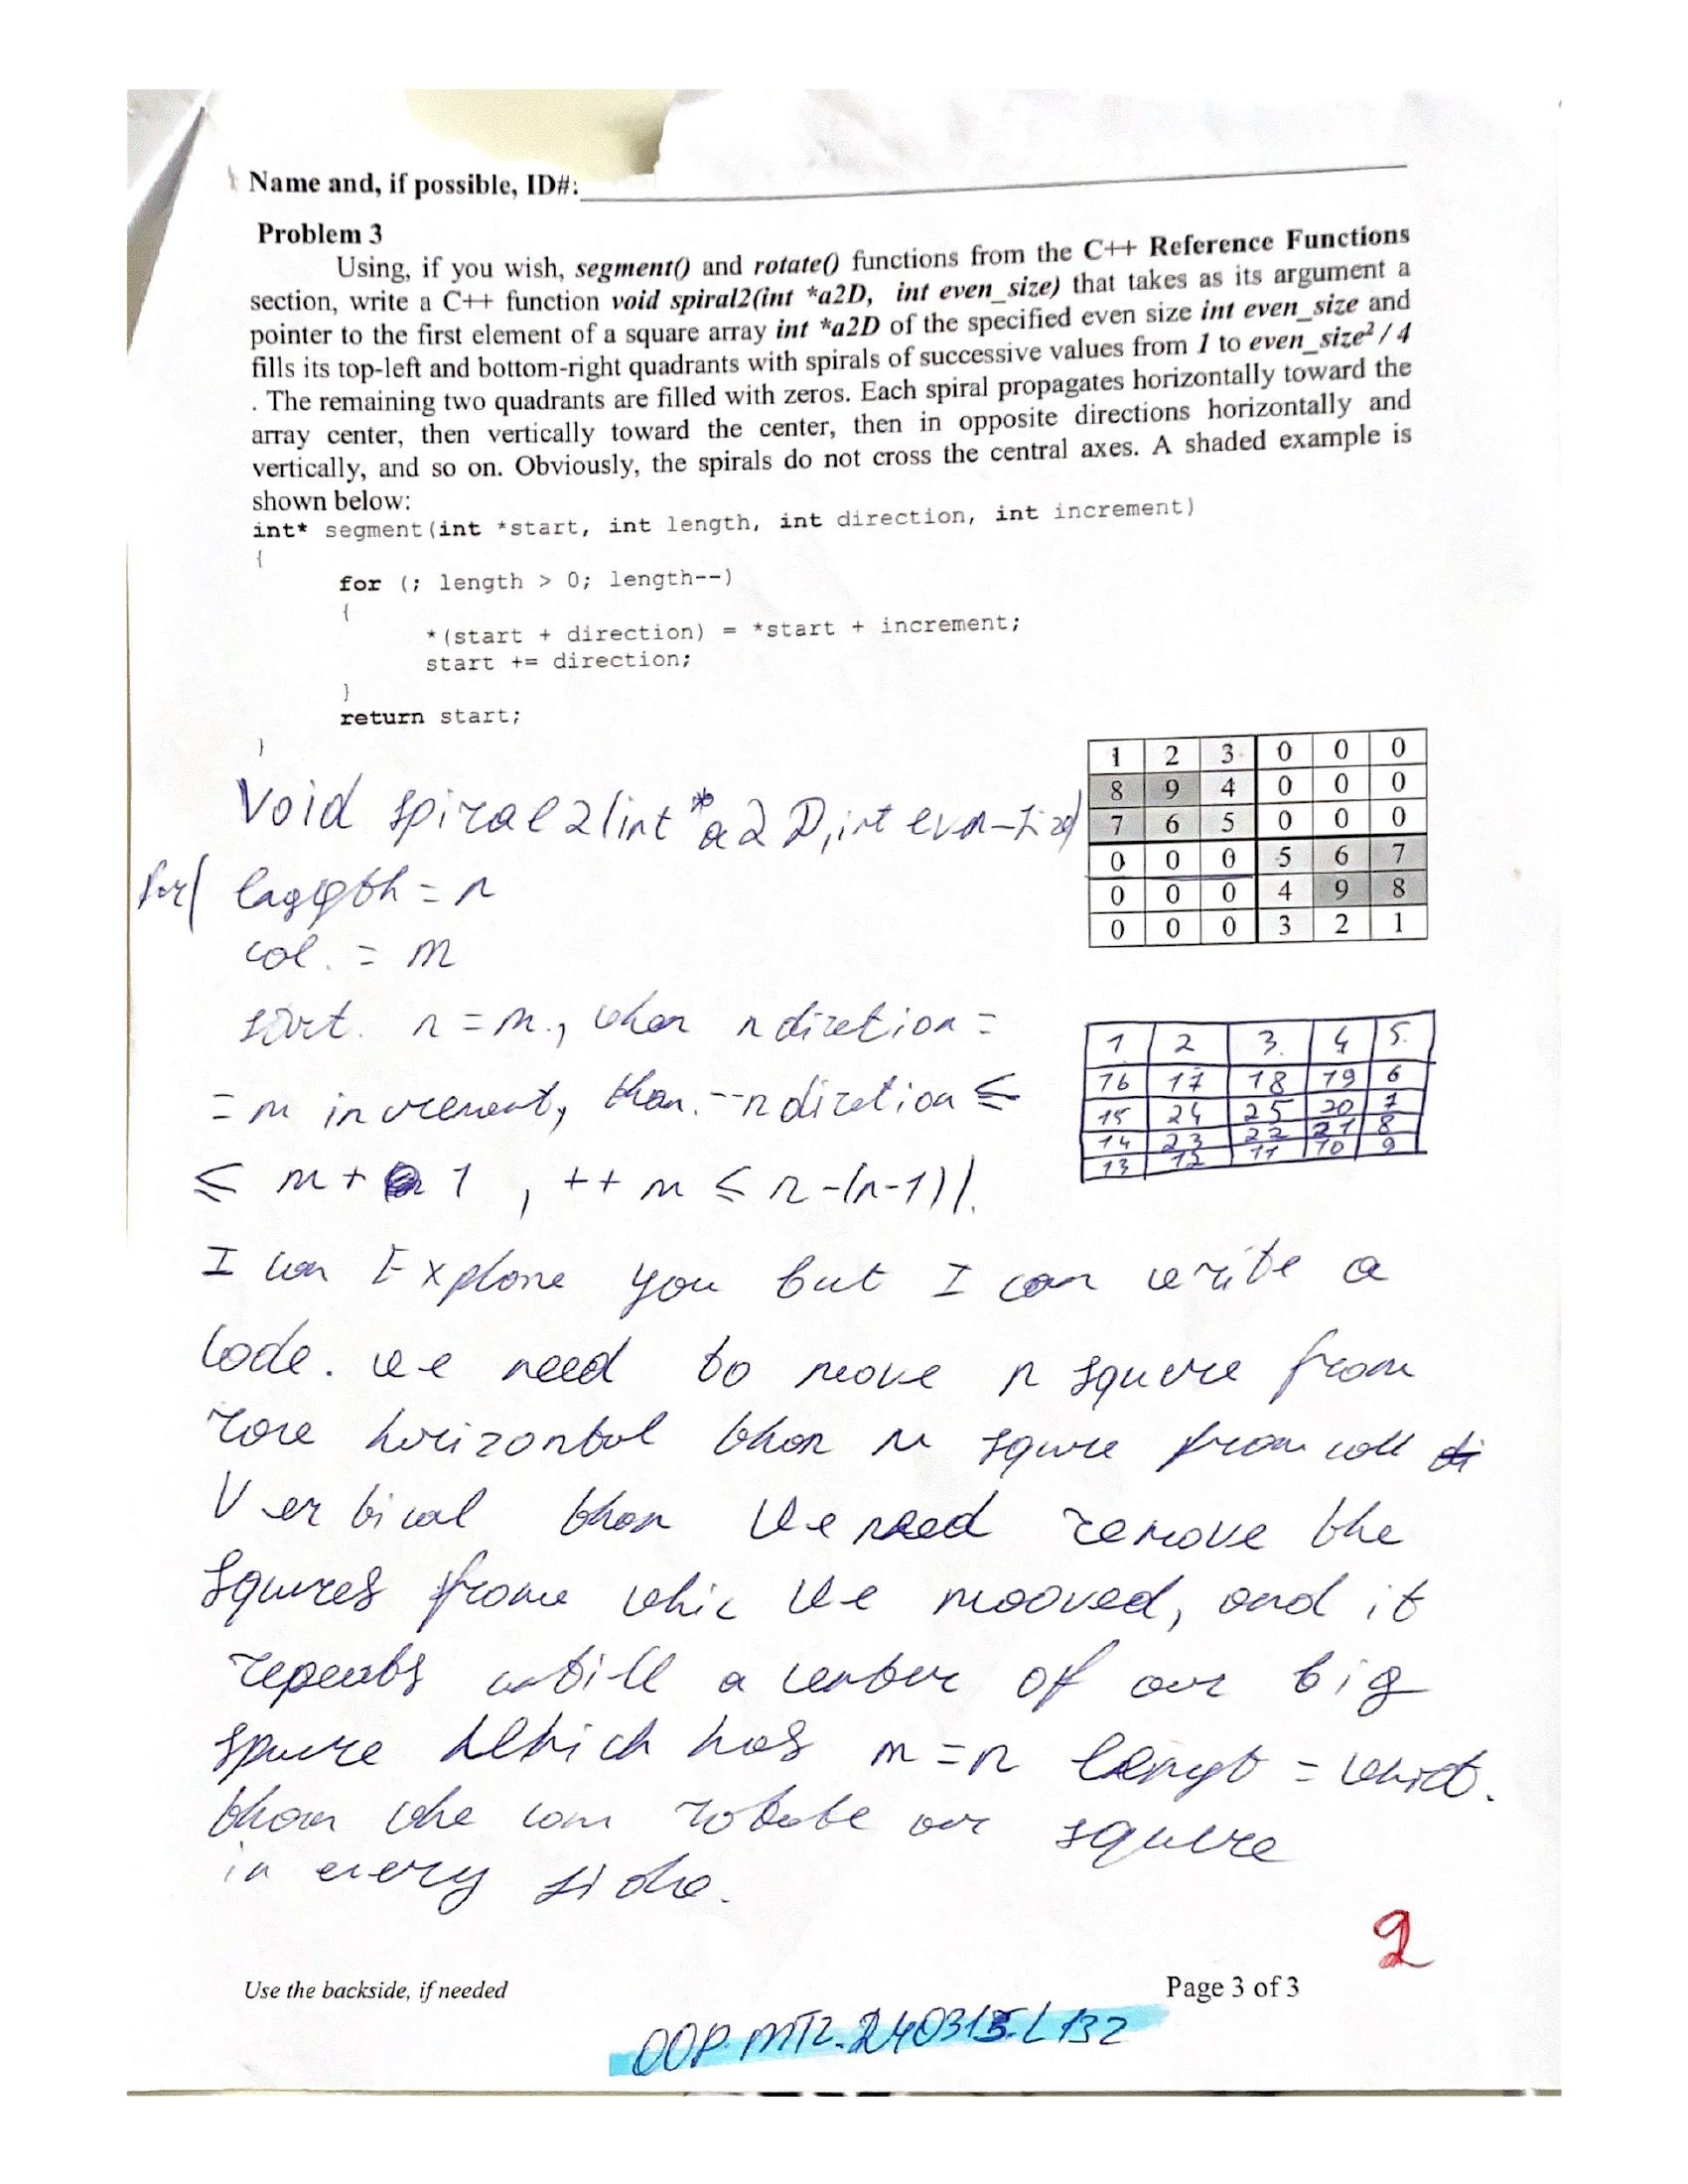 Name and, if possible, ID#:
Problem 3
Using, if you wish, segment() and rotate() functions from the C++ Reference Functions
section, write a C++ function void spiral2(int *a2D, int even_size) that takes as its argument a
pointer to the first element of a square array int *a2D of the specified even size int even_size and
fills its top-left and bottom-right quadrants with spirals of successive values from 1 to even_size² / 4
. The remaining two quadrants are filled with zeros. Each spiral propagates horizontally toward the
array center, then vertically toward the center, then in opposite directions horizontally and
vertically, and so on. Obviously, the spirals do not cross the central axes. A shaded example is
shown below:
int* segment(int *start, int length, int direction, int increment)
{
for (; length > 0; length--)
{
*(start + direction) = *start + increment;
start += direction;
}
return start;
}
1 2 3 0 0 0
8 9 4 0 0 0
7 6 5 0 0 0
0 0 0 5 6 7
0 0 0 4 9 8
0 0 0 3 2 1
Void spiral2(int *a2D, int
for(
= n
col. = m
n = m., n diretion =
= m increment, than. --n diretion ≤
≤ m + 1 , ++ m ≤ n-(n-1)).
1 2 3. 4 5.
16 17 18 19 6
15 24 25 20 7
14 23 22 21 8
13 12 11 10 9
I can Explane you but I can write a
code. we need to move n squere from
rore horizontal than m squre from coll
Vertical than We need remove the
squres frome whic We mooved, and it
repeats untill a center of our big
squre Which has m = n lengt =
than whe can rotate our squere
in every side.
2
Use the backside, if needed
Page 3 of 3
OOP.MT2.240315.L132